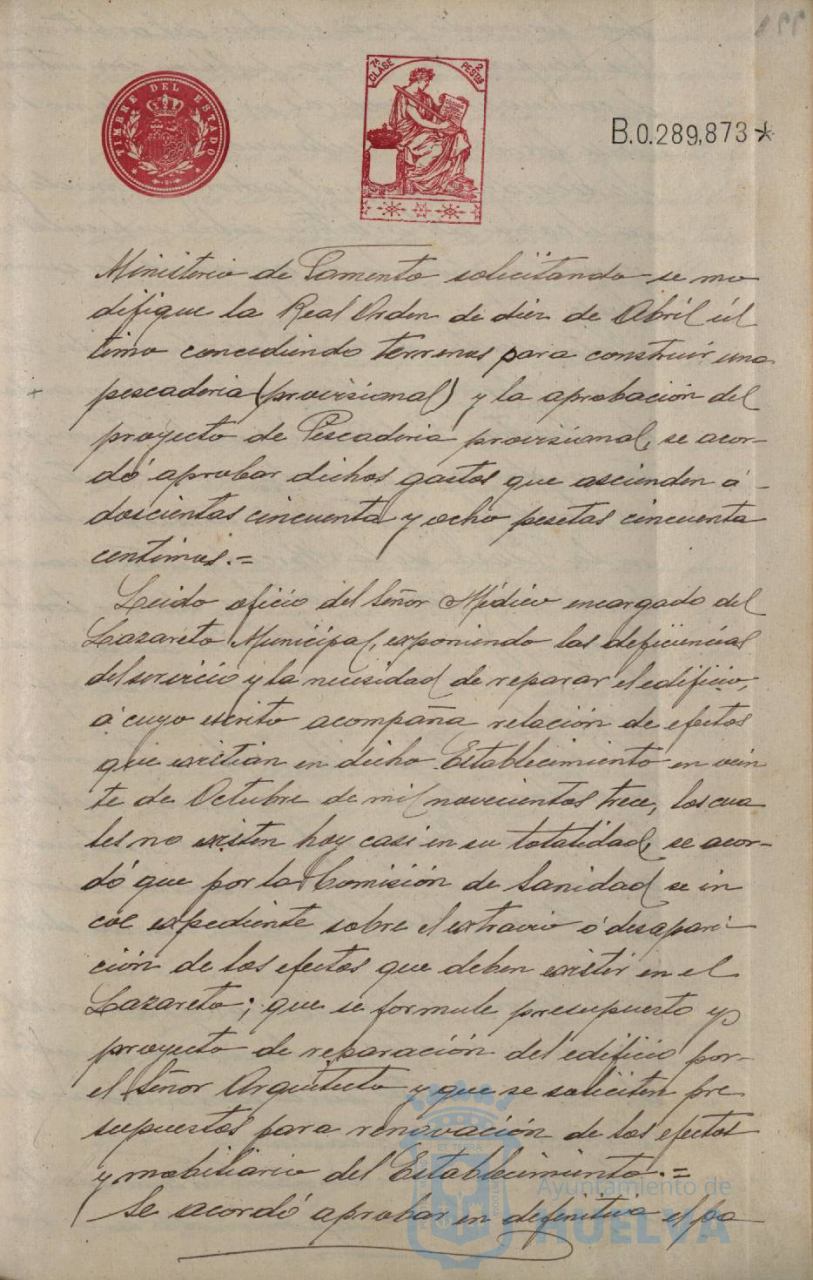 199
TIMBRE DEL ESTADO
7ª CLASE 2 PESETAS
B.0.289,873*
Ministerio de Fomento solicitando se mo
difique la Real Orden de diez de Abril úl
timo concediendo terrenos para construir una
pescaderia (provisional) y la aprobación del
proyecto de Pescaderia provisional, se acor-
dó aprobar dichos gastos que ascienden á
doscientas cincuenta y ocho pesetas cincuenta
centimos.=
Leido oficio del Señor Médico encargado del
Lazareto Municipal, exponiendo las deficiencias
del servicio y la necesidad de reparar el edificio,
á cuyo escrito acompaña relación de efectos
que existian en dicho Establecimiento en vein
te de Octubre de mil novecientos trece, los cua
les no existen hoy casi en su totalidad, se acor-
dó que por la Comisión de Sanidad se in
coe expediente sobre el extravio ó desapari-
ción de los efectos que deben existir en el
Lazareto; que se formule presupuesto y
proyecto de reparación del edificio por
el Señor Arquitecto y que se soliciten pre
supuestos para renovación de los efectos
y mobiliario del Establecimiento.=
Se acordó aprobar en definitiva el pa
Ayuntamiento de
HUELVA